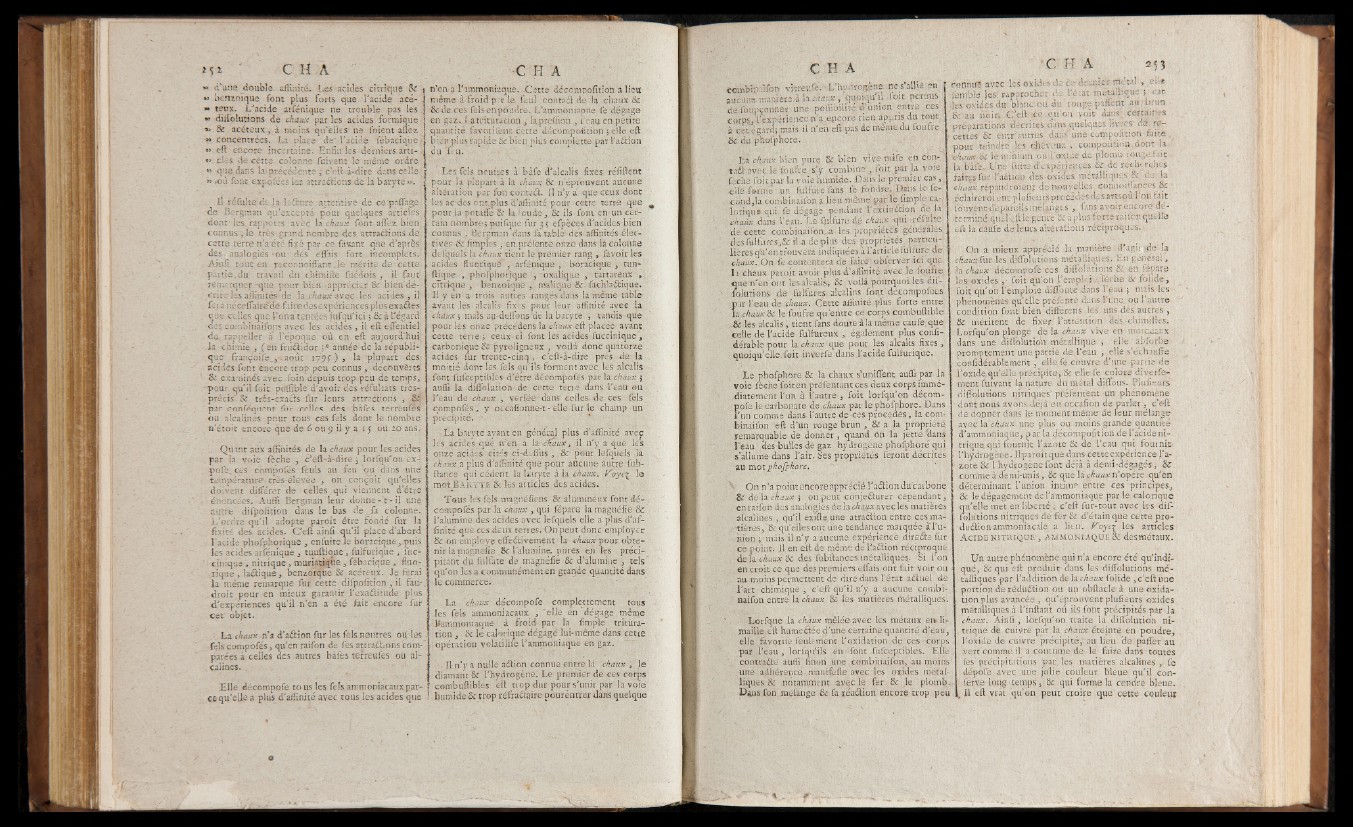 252 C H A
» d'une double affinité. Les acides citrique &
» benzoique font plus forts que l'acide acé-
» teux. L'acide arfénique ne trouble pas les
» diffolutions de chaux par les acides formique
» & acéteux, à moins qu'elles ne foient affez
» concentrées. La place de l'acide fébacique
» eft encore incertaine. Enfin les derniers arti-
» cles de cette colonne fuivent le même ordre
» que dans la précédente, c'eft-à-dire dans celle
» où font expofées les attractions de la baryte ».
Il réfulte de la lecture attentive de ce paffage
de Bergman qu'excepté pour quelques articles
dont les rapports avec la chaux font affez bien
connus, le très-grand nombre des attractions de
cette terre n'a été fixé par ce favant que d'après
des analogies ou des effais fort incomplets.
Ainfi tout en reconnoiffant le mérite de cette
partie du travail du chimifte fuédois, il faut
remarquer que pour bien apprécier & bien dé-
crire les affinités de la chaux avec les acides, il
fera néceffaire de faire des expériences plus exactes
que celles que l'on a tentées jufqu'ici; & à l'égard
des combinaifons avec les acides, il eft effentiel
de rappeller à l'époque où en eft aujourd'hui
la chimie, (en fructidor 3e année de la républi-
que françoife, août 1795), la plupart des
acides font encore trop peu connus, découverts
& examinés avec foin depuis trop peu de temps,
pour qu'il foit poffible d'avoir des réfultats très-
précis & très-exacts fur leurs attractions, &
par conféquent fur celles des bâfes terreufes
ou alcalines pour tous ces fels dont le nombre
n'étoit encore que de 6 ou 9 il y a 15 ou 20 ans.
Quant aux affinités de la chaux pour les acides
par la voie fèche, c'eft-à-dire, lorfqu'on ex-
pofe ces compofés feuls au feu ou dans une
température très-élevée, on conçoit qu'elles
doivent différer de celles qui viennent d'être
énoncées. Auffi Bergman leur donne-t-il une
autre difpofition dans le bas de fa colonne.
L'ordre qu'il adopte paroît être fondé fur la
fixité des acides. C'eft ainfi qu'il place d'abord
l'acide phofphorique, enfuite le boracique, puis
les acides arfénique, tunftique, fulfurique, fuc-
cinique, nitrique, muriatique, fébacique, fluo-
rique, lactique, benzoïque & acéteux. Je ferai
la même remarque fur cette difpofition, il fau-
droit pour en mieux garantir l'exactitude plus
d'expériences qu'il n'en a été fait encore fur
cet objet.
La chaux n'a d'action fur les fels neutres ou les
fels compofés, qu'en raifon de fes attractions com-
parées à celles des autres bafes terreufes ou al-
calines.
Elle décompofe tous les fels ammoniacaux par-
ce qu'elle a plus d'affinité avec tous les acides, que
C H A
n'en a l'ammoniaque. Cette décompofition a lieu
même à froid par le feul contact de la chaux &
& de ces fels en poudre. L'ammoniaque fe dégage
en gaz. La trituration, la preffion, l'eau en petite
quantité favorifent cette décompofition; elle eft
bien plus rapide & bien plus complette par l'action
du feu.
Les fels neutres à bâfe d'alcalis fixes réfiftent
pour la plupart à la chaux & n'éprouvent aucune
altération par fon contact. Il n'y a que ceux dont
les acides ont plus d'affinité pour cette terre que
pour la potaffe & la foude, & ils font en un cer-
tain nombre; puifque fur 35 efpèces d'acides bien
connus, Bergman dans fa table des affinités élec-
tives & fimples, en préfente onze dans la colonne
defquels la chaux tient le premier rang, favoir les
acides fluorique, arfénique, boracique, tun-
ftique, phofphorique, oxalique, tartareux,
citrique, benzoique, malique & fachlactique.
Il y en a trois autres rangés dans la même table
avant les alcalis fixes pour leur affinité avec la
chaux, mais au-deffous de la baryte, tandis que
pour les onze précédens la chaux eft placée avant
cette terre; ceux-ci font les acides fuccinique,
carbonique & pyroligneux, voilà donc quatorze
acides fur trente-cinq, c'eft-à-dire près de la
moitié dont les fels qu'ils forment avec les alcalis
font fufceptibles d'être décompofés par la chaux;
auffi la diffolution de cette terre dans l'eau ou
l'eau de chaux, verfée dans celles de ces fels
compofés, y occafionne-t-elle fur le champ un
précipité.
La baryte ayant en général plus d'affinité avec
les acides que n'en a la chaux, il n'y a que les
onze acides cités ci-deffus, & pour lefquels la
chaux a plus d'affinité que pour aucune autre fub-
ftance qui cèdent la baryte à la chaux. Voyez le
mot BARYTE & les articles des acides.
Tous les fels magnéfiens & alumineux font dé-
compofés par la chaux, qui fépare la magnéfie &
l'alumine des acides avec lefquels elle a plus d'af-
finité que ces deux terres. On peut donc employer
& on employe effectivement la chaux pour obte-
nir la magnéfie & l'alumine pures en les préci-
pitant du fulfate de magnéfie & d'alumine, tels
qu'on les a communément en grande quantité dans
le commerce.
La chaux décompofe complettement tous
les fels ammoniacaux, elle en dégage même
l'ammoniaque à froid par la fimple tritura-
tion, & le calorique dégagé lui-même dans cette
opération volatilife l'ammoniaque en gaz.
Il n'y a nulle action connue entre la chaux, le
diamant & l'hydrogène. Le premier de ces corps
combuftibles eft trop dur pour s'unir par la voie
humide & trop réfractaire pour entrer dans quelque
C H A
combinaifon vitreufe. L'hydrogène ne s'allie en
aucune manière à la chaux, quoiqu'il foit permis
de foupçonner une poffibilité d'union entre ces
corps, l'expérience n'a encore rien appris du tout
à cet égard; mais il n'en eft pas de même du foufre
& du phofphore.
La chaux bien pure & bien vive mife en con-
tact avec le foufre s'y combine, foit par la voie
fèche foit par la voie humide. Dans le premier cas,
elle forme un fulfure fans fe fondre. Dans le fe-
cond, la combinaifon a lieu même par le fimple ca-
lorique qui fe dégage pendant l'extinction de la
chaux dans l'eau. Le fulfure de chaux qui réfulte
de cette combinaifon a les propriétés générales
des fulfures, & il a de plus des propriétés particu-
lières qu'on trouvera indiquées à l'article fulfure de
chaux. On fe contentera de faire obferver ici que
la chaux paroît avoir plus d'affinité avec le foufre
que n'en ont les alcalis, & voilà pourquoi les dif-
folutions de fulfures alcalins font décompofées
par l'eau de chaux. Cette affinité plus forte entre
la chaux & le foufre qu'entre ce corps combuftible
& les alcalis, tient fans doute à la même caufe que
celle de l'acide fulfureux, également plus confi-
dérable pour la chaux que pour les alcalis fixes,
quoiqu'elle foit inverfe dans l'acide fulfurique.
Le phofphore & la chaux s'uniffent auffi par la
voie fèche foit en préfentant ces deux corps immé-
diatement l'un à l'autre, foit lorfqu'on décom-
pofe le carbonate de chaux par le phofphore. Dans
l'un comme dans l'autre de ces procédés, la com-
binaifon eft d'un rouge brun, & a la propriété
remarquable de donner, quand on la jette dans
l'eau des bulles de gaz hydrogène phofphoré qui
s'allume dans l'air. Ses propriétés feront décrites
au mot phofphore.
On n'a point encore apprécié l'action du carbone
& de la chaux; on peut conjecturer cependant,
en raifon des analogies de la chaux avec les matières
alcalines, qu'il exifte une attraction entre ces ma-
tières, & qu'elles ont une tendance marquée à l'u-
nion; mais il n'y a aucune expérience directe fur
ce point. Il en eft de même de l'action réciproque
de la chaux & des fubftances métalliques. Si l'on
en croit ce que des premiers effais ont fait voir ou
au moins permettent de dire dans l'état actuel de
l'art chimique, c'eft qu'il n'y a aucune combi-
naifon entre la chaux & les matières métalliques.
Lorfque la chaux mêlée avec les métaux en li-
maille eft humectée d'une certaine quantité d'eau,
elle favorife feulement l'oxidation de ces corps
par l'eau, lorfqu'ils en font fufceptibles. Elle
contracte auffi finon une combinaifon, au moins
une adhérence manifefte avec les oxides métal-
liques & notamment avec le fer & le plomb.
Dans fon mélange & fa réaction encore trop peu
C H A 253
connue avec les oxides de ce dernier métal, elle
femble les rapprocher de l'état métallique; car
les oxides du blanc ou du rouge paffent au brun
& au noir. C'eft ce qu'on voit dans certaines
préparations décrites dans quelques livres de re-
cettes & entr'autres dans une compofition faite
pour teindre les cheveux, compofition dont la
chaux & le minium ou l'oxide de plomb rouge fait
la bâfe. Une fuite d'expériences & de recherches
faites fur l'action des oxides métalliques & de la
chaux répandroient de nouvelles connoiffances &
éclaireroient plufieurs procédés des arts où l'on fait
fouvent de pareils mélanges, fans avoir encore dé-
terminé quel eft le genre & à plus forte raifon quelle
eft la caufe de leurs altérations réciproques.
On a mieux apprécié la manière d'agir de la
chaux fur les diffolutions métalliques. En général,
la chaux décompofe ces diffolutions & en fépare
les oxides, foit qu'on l'emploie fèche & folide,
foit qu'on l'emploie diffoute dans l'eau; mais les
phénomènes qu'elle préfente dans l'une ou l'autre
condition font bien différens les uns des autres,
& méritent de fixer l'attention des chimiftes.
Lorfqu'on plonge de la chaux vive en morceaux
dans une diffolution métallique, elle abforbe
promptement une partie de l'eau, elle s'échauffe
confidérablement, elle fe couvre d'une partie de
l'oxide qu'elle précipite, & elle fe colore diverfe-
ment fuivant la nature du métal diffous. Plufieurs
diffolutions nitriques préfentent un phénomène
dont nous avons déjà eu occafion de parler, c'eft
de donner dans le moment même de leur mélange
avec la chaux une plus ou moins grande quantité
d'ammoniaque, par la décompofition de l'acide ni-
trique qui fournit l'azote & de l'eau qui fournit
l'hydrogène. Il paroit que dans cette expérience l'a-
zote & l'hydrogène font déjà à demi-dégagés, &
comme à demi-unis, & que la chaux n'opère qu'en
déterminant l'union intime entre ces principes,
& le dégagement de l'ammoniaque par le calorique
qu'elle met en liberté; c'eft fur-tout avec les dif-
folutions nitriques de fer & d'étain que cette pro-
duction ammoniacale a lieu. Voyez les articles
ACIDE NITRIQUE, AMMONIAQUE & des métaux.
Un autre phénomène qui n'a encore été qu'indi-
qué, & qui eft produit dans les diffolutions mé-
talliques par l'addition de la chaux folide, c'eft une
portion de réduction ou un obftacle à une oxida-
tion plus avancée, qu'éprouvent plufieurs oxides
métalliques à l'inftant où ils font précipités par la
chaux. Ainfi, lorfqu'on traite la diffolution ni-
trique de cuivre par la chaux éteinte en poudre,
l'oxide de cuivre précipité, au lieu de paffer au
vert comme il a coutume de le faire dans toutes
fes précipitations par les matières alcalines, fe
dépofe avec une jolie couleur bleue qu'il con-
ferve long-temps, & qui forme la cendre bleue.
Il eft vrai qu'on peut croire que cette couleur